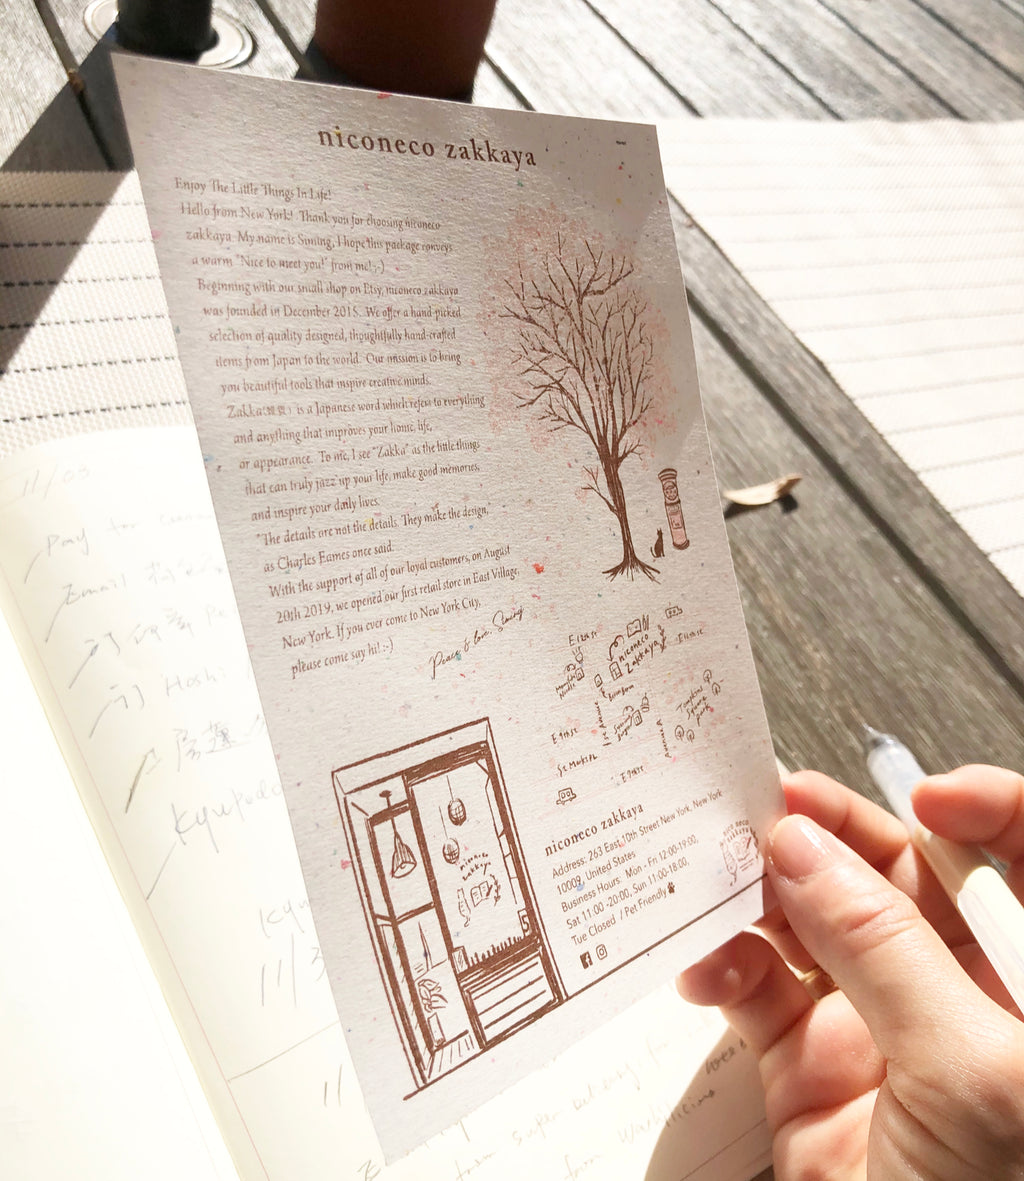 niconeco zakkaya
Enjoy The Little Things In Life!
Hello from New York! Thank you for choosing niconeco
zakkaya. My name is Suning, I hope this package conveys
a warm "Nice to meet you!" from me! ;-)
Beginning with our small shop on Etsy, niconeco zakkaya
was founded in December 2015. We offer a hand-picked
selection of quality designed, thoughtfully hand-crafted
items from Japan to the world. Our mission is to bring
you beautiful tools that inspire creative minds.
Zakka(雑貨) is a Japanese word which refers to everything
and anything that improves your home, life,
or appearance. To me, I see "Zakka" as the little things
that can truly jazz up your life, make good memories,
and inspire your daily lives.
"The details are not the details. They make the design,"
as Charles Eames once said.
With the support of all of our loyal customers, on August
20th 2019, we opened our first retail store in East Village,
New York. If you ever come to New York City,
please come say hi! :-)
Peace & love, Suning
E 11th St
niconeco
zakkaya
E 10th St
1st Avenue
Tompkins
Square
Park
Avenue A
E 9th St
St Marks Pl
niconeco
zakkaya
niconeco zakkaya
Address: 263 East 10th Street New York, New York
10009, United States
Business Hours: Mon - Fri 12:00-19:00,
Sat 11:00 -20:00, Sun 11:00-18:00,
Tue Closed / Pet Friendly
nico neco
zakkaya
11/03
Pay for
Email
Hoshi
Kyupodo
11/3
11
from super
from Washi